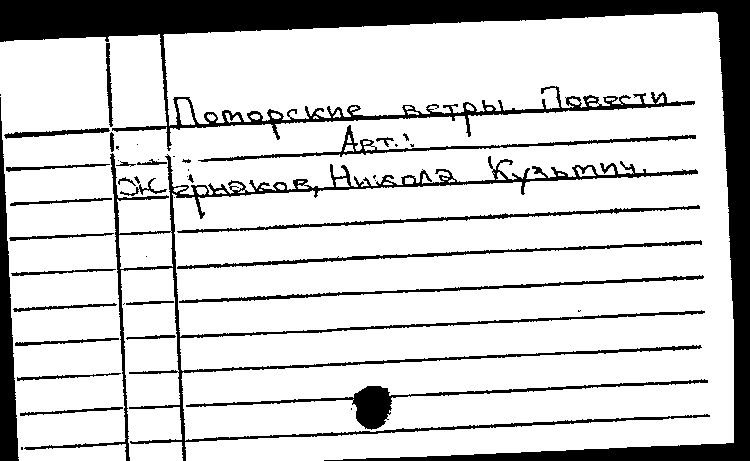 Поморские ветры. Повести
Авт.:
Жернаков, Никола Кузьмич.